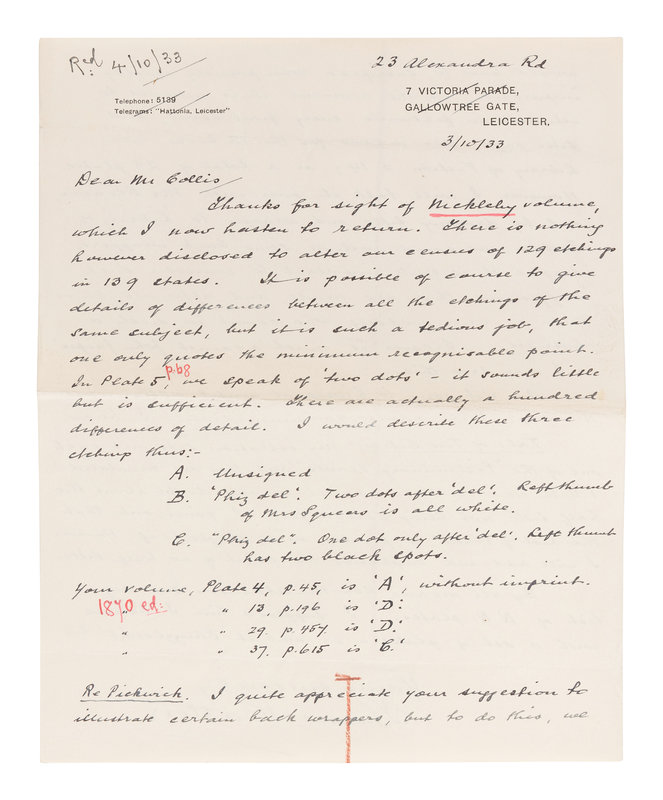 Red 4/10/33
Telephone: 5139
Telegrams: "Hattonia, Leicester"
23 Alexandra Rd
7 VICTORIA PARADE,
GALLOWTREE GATE,
LEICESTER.
3/10/33
Dear Mr Collis
Thanks for sight of Nickleby volume,
which I now hasten to return. There is nothing
however disclosed to alter our census of 129 etchings
in 139 states. It is possible of course to give
details of differences between all the etchings of the
same subject, but it is such a tedious job, that
one only quotes the minimum recognisable point.
In Plate 5, p.68 we speak of 'two dots' - it sounds little
but is sufficient. There are actually a hundred
differences of detail. I would describe these three
etching thus:-
A. Unsigned
B. 'Phiz del'. Two dots after 'del'. Left thumb
of Mrs Squeers is all white.
C. "Phiz del". One dot only after 'del'. Left thumb
has two black spots.
Your volume, Plate 4, p.45, is 'A', without imprint.
1870 ed: " " 13, p.196 is 'D'.
" " 29. p.457 is 'D'.
" " 37. p.615 is 'C'.
Re Pickwick. I quite appreciate your suggestion to
illustrate certain back wrappers, but to do this, we